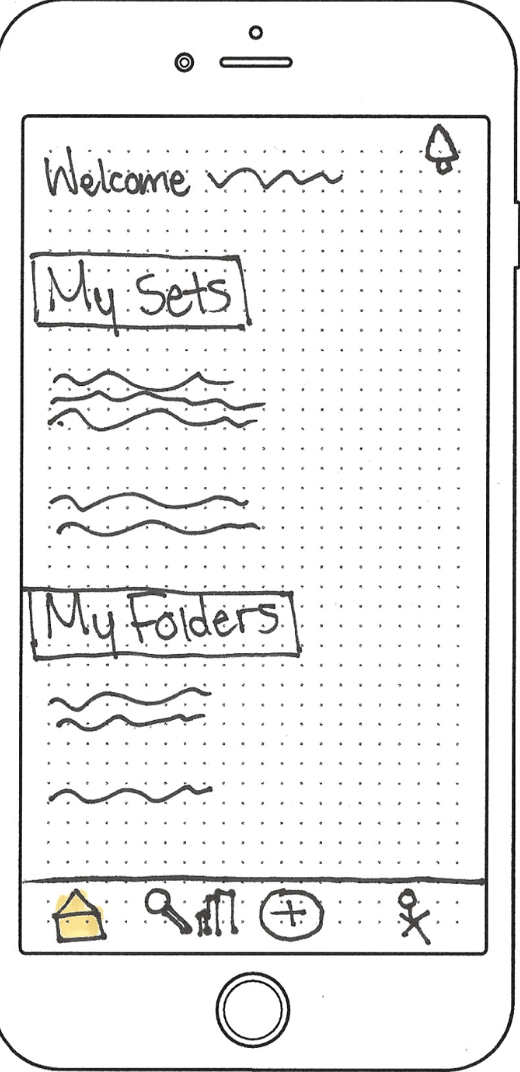 Welcome
My Sets
My Folders